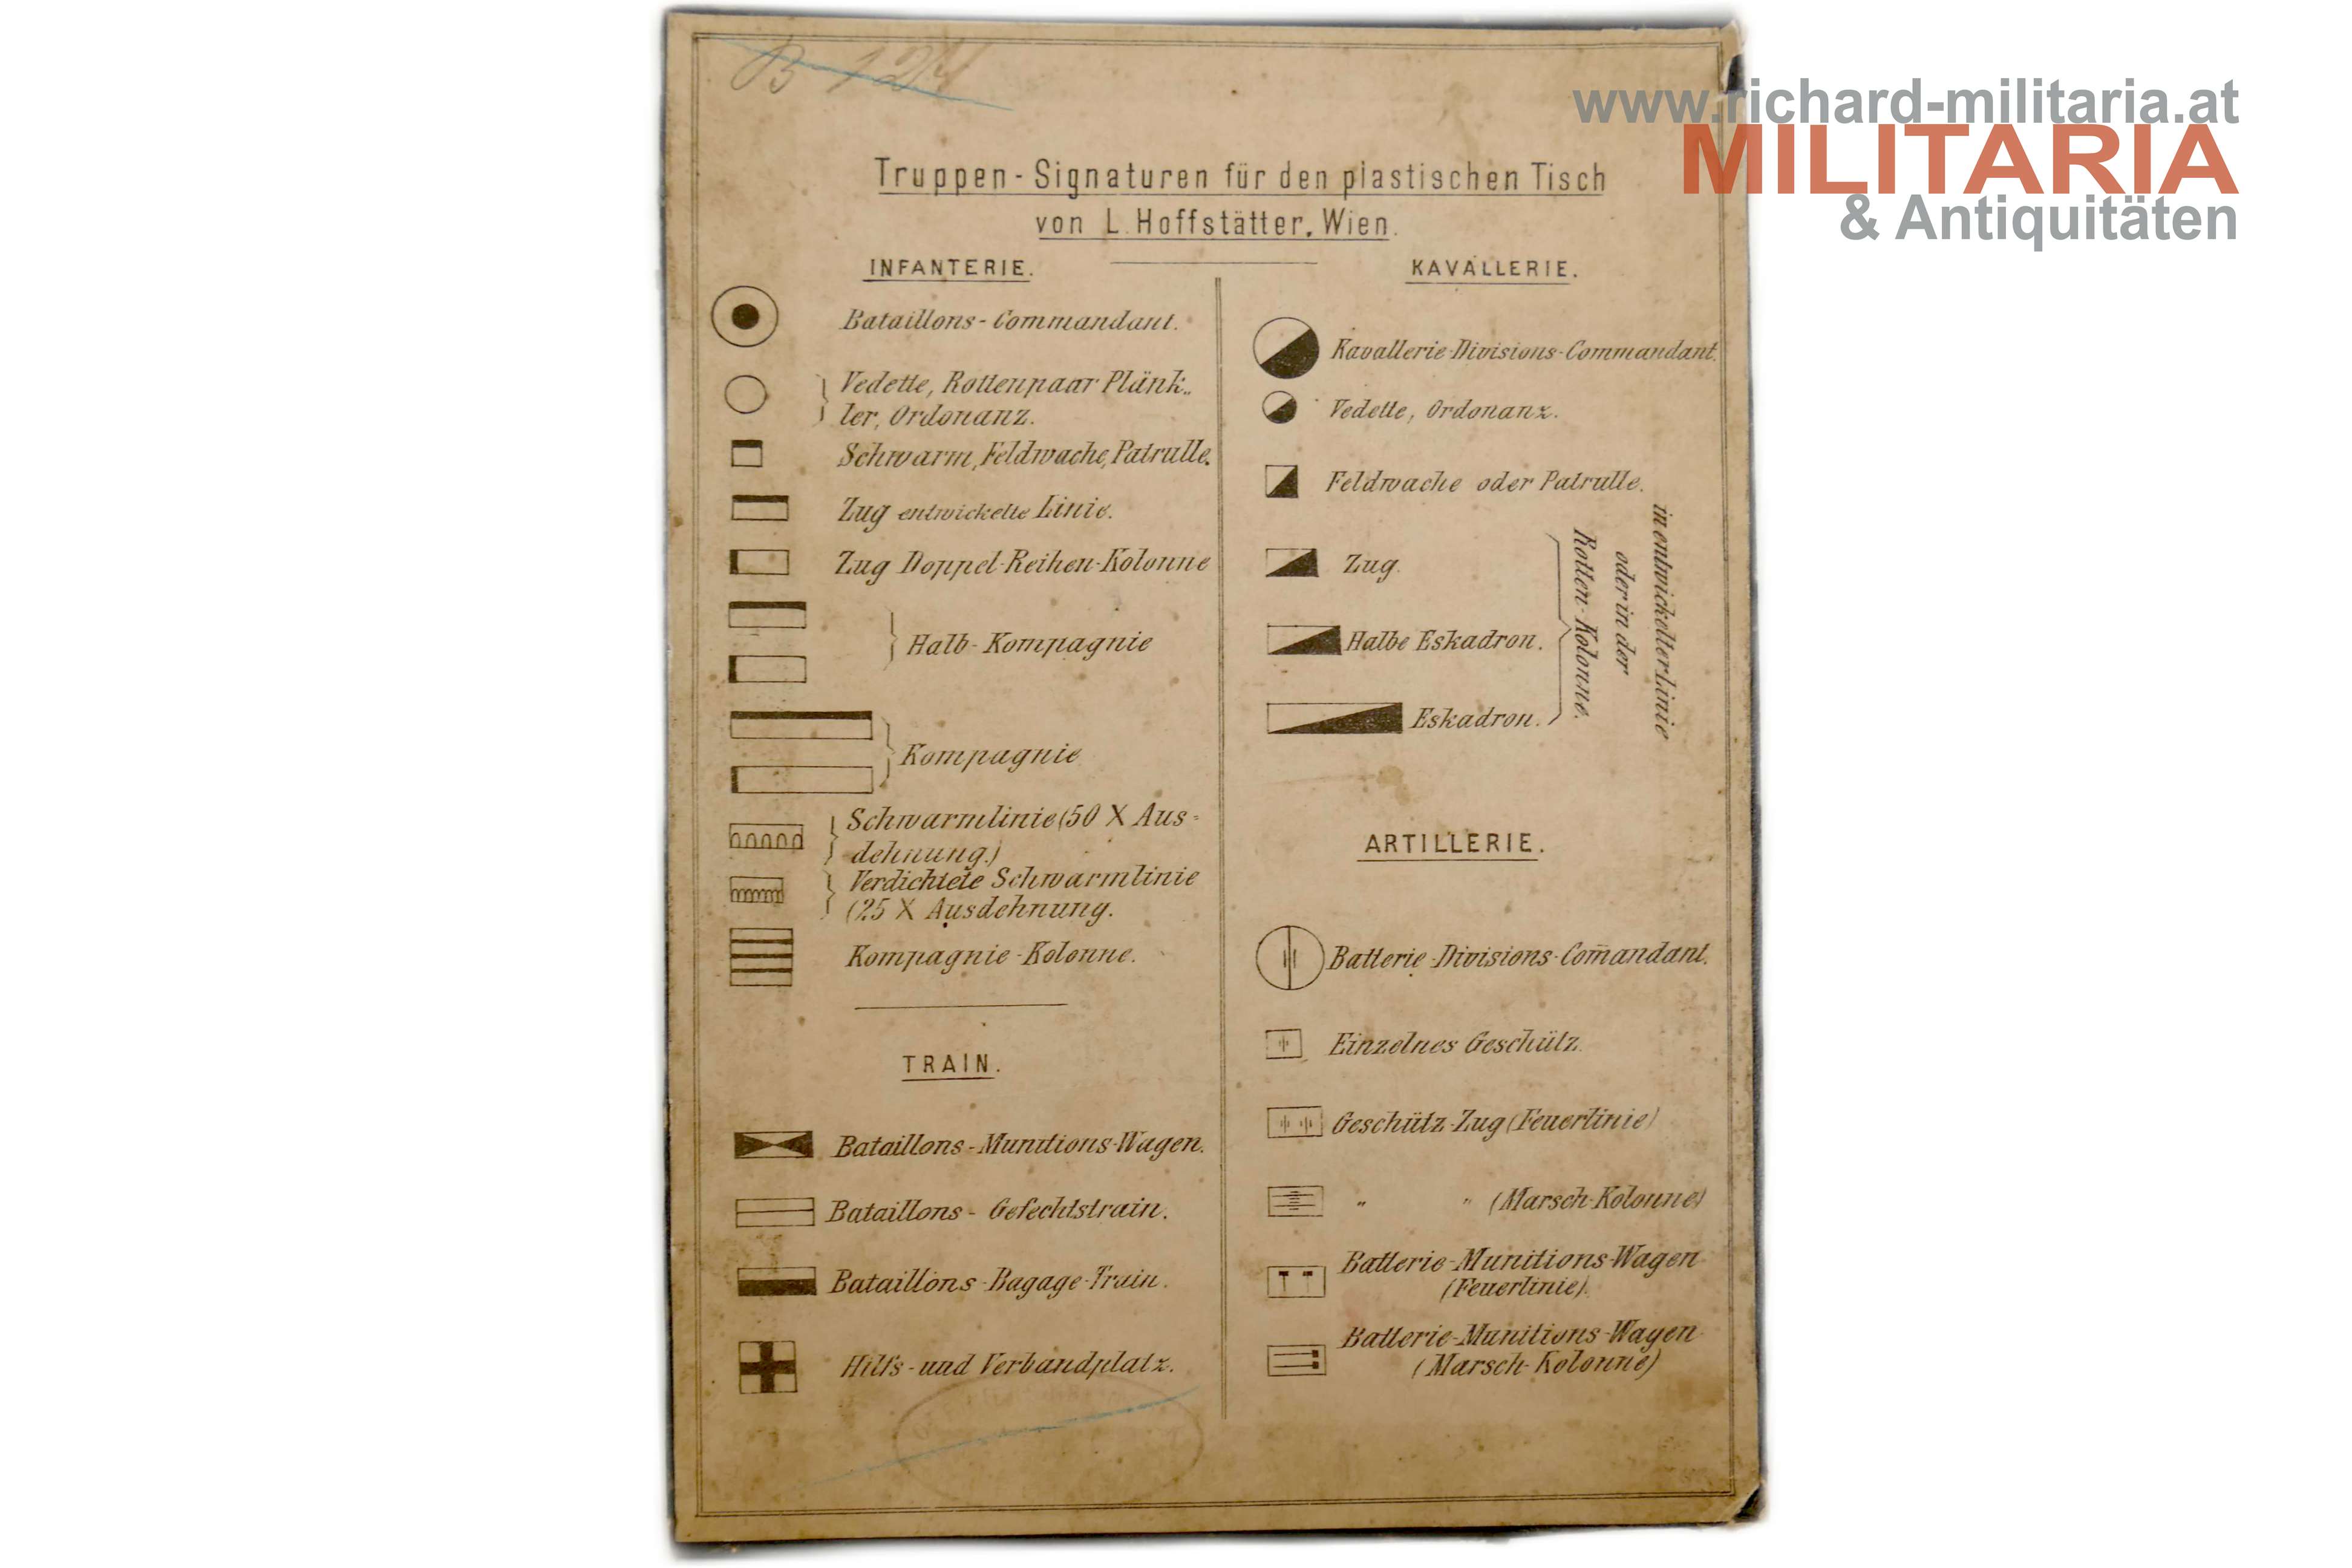 B 124
www.richard-militaria.at
MILITARIA
& Antiquitäten
Truppen-Signaturen für den plastischen Tisch
von L. Hoffstätter, Wien.
INFANTERIE.
Bataillons-Commandant.
Vedette, Rottenpaar Plänk-
ler, Ordonanz.
Schwarm, Feldwache, Patrulle.
Zug entwickelte Linie.
Zug Doppel-Reihen-Kolonne
Halb-Kompagnie
Kompagnie
Schwarmlinie (50 X Aus-
dehnung.)
Verdichtete Schwarmlinie
(25 X Ausdehnung.
Kompagnie-Kolonne.
TRAIN.
Bataillons-Munitions-Wagen.
Bataillons-Gefechtstrain.
Bataillons-Bagage-Train.
Hilfs-und Verbandplatz.
KAVALLERIE.
Kavallerie-Divisions-Commandant.
Vedette, Ordonanz.
Feldwache oder Patrulle.
Zug.
Halbe Eskadron.
Eskadron.
in entwickelter Linie
oder in der
Rotten-Kolonne.
ARTILLERIE.
Batterie-Divisions-Com̄andant.
Einzelnes Geschütz.
Geschütz-Zug (Feuerlinie)
" " (Marsch-Kolonne)
Batterie-Munitions-Wagen
(Feuerlinie).
Batterie-Munitions-Wagen
(Marsch-Kolonne)